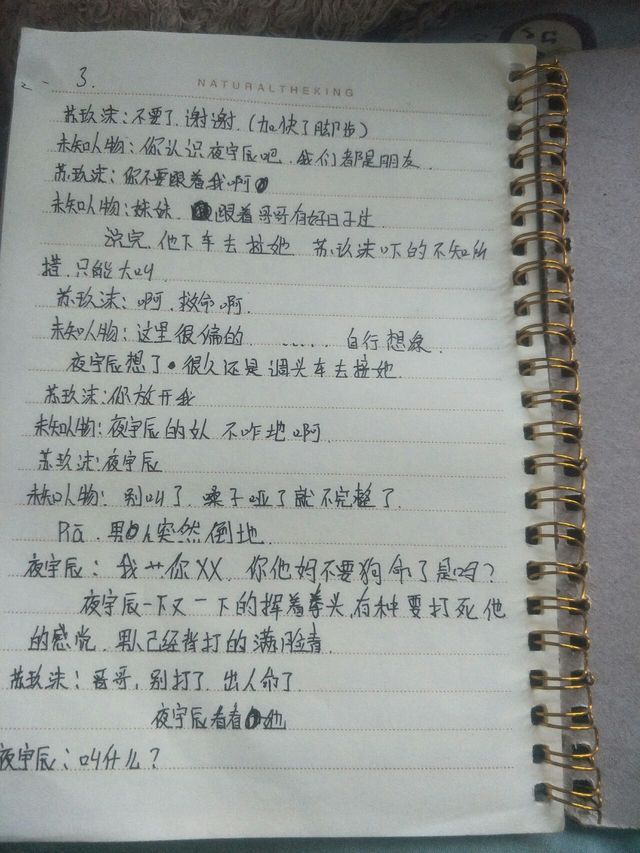 3.
NATURALTHEKING
苏玖沫:不要了,谢谢.(加快了脚步)
未知人物:你认识夜宇辰吧,我们都是朋友.
苏玖沫:你不要跟着我啊
未知人物:妹妹 跟着哥哥有好日子过
说完,他下车去拉她 苏玖沫吓的不知所
措,只能大叫
苏玖沫:啊,救命啊.
未知人物:这里很偏的 ...... 自行想象.
夜宇辰想了很久还是调头车去接她
苏玖沫:你放开我
未知人物:夜宇辰的女人 不咋地啊.
苏玖沫:夜宇辰
未知人物:别叫了,嗓子哑了就不完整了.
Pia.男人突然倒地.
夜宇辰:我艹你XX,你他妈不要狗命了是吗?
夜宇辰一下又一下的挥着拳头,有种要打死他
的感觉,男人已经背打的满脸青.
苏玖沫:哥哥,别打了,出人命了.
夜宇辰看着她
夜宇辰:叫什么?